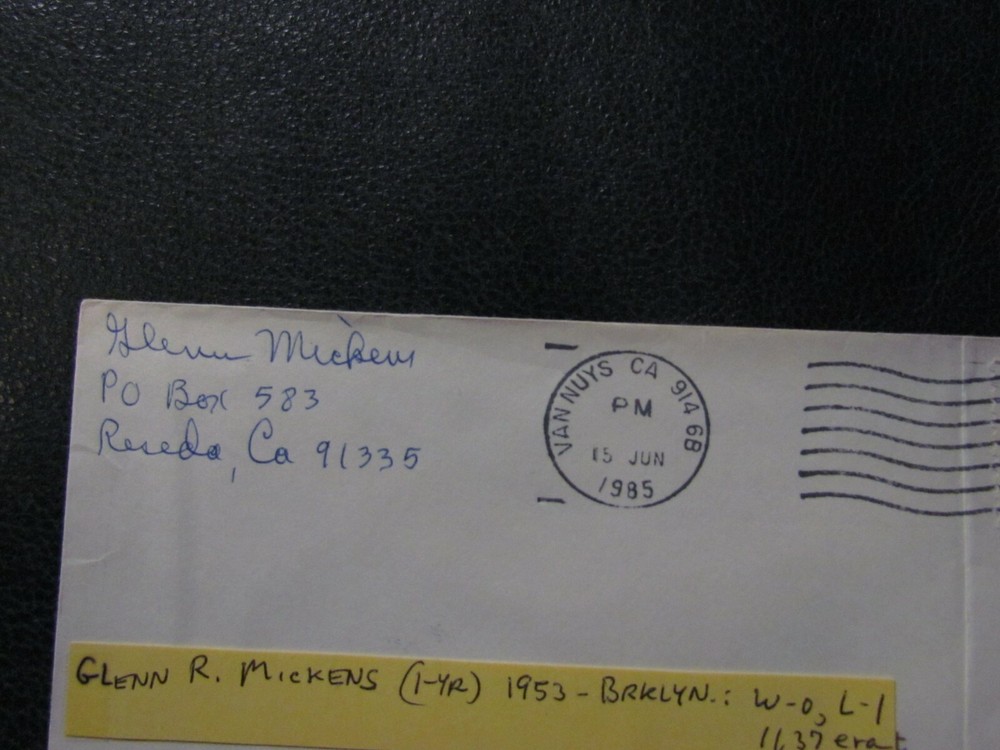 Glenn Mickens
PO Box 583
Reseda, Ca 91335
VAN NUYS CA 914 6B
PM
15 JUN
1985
GLENN R. MICKENS (1-YR) 1953 - BRKLYN.: W-0, L-1
11.37 era